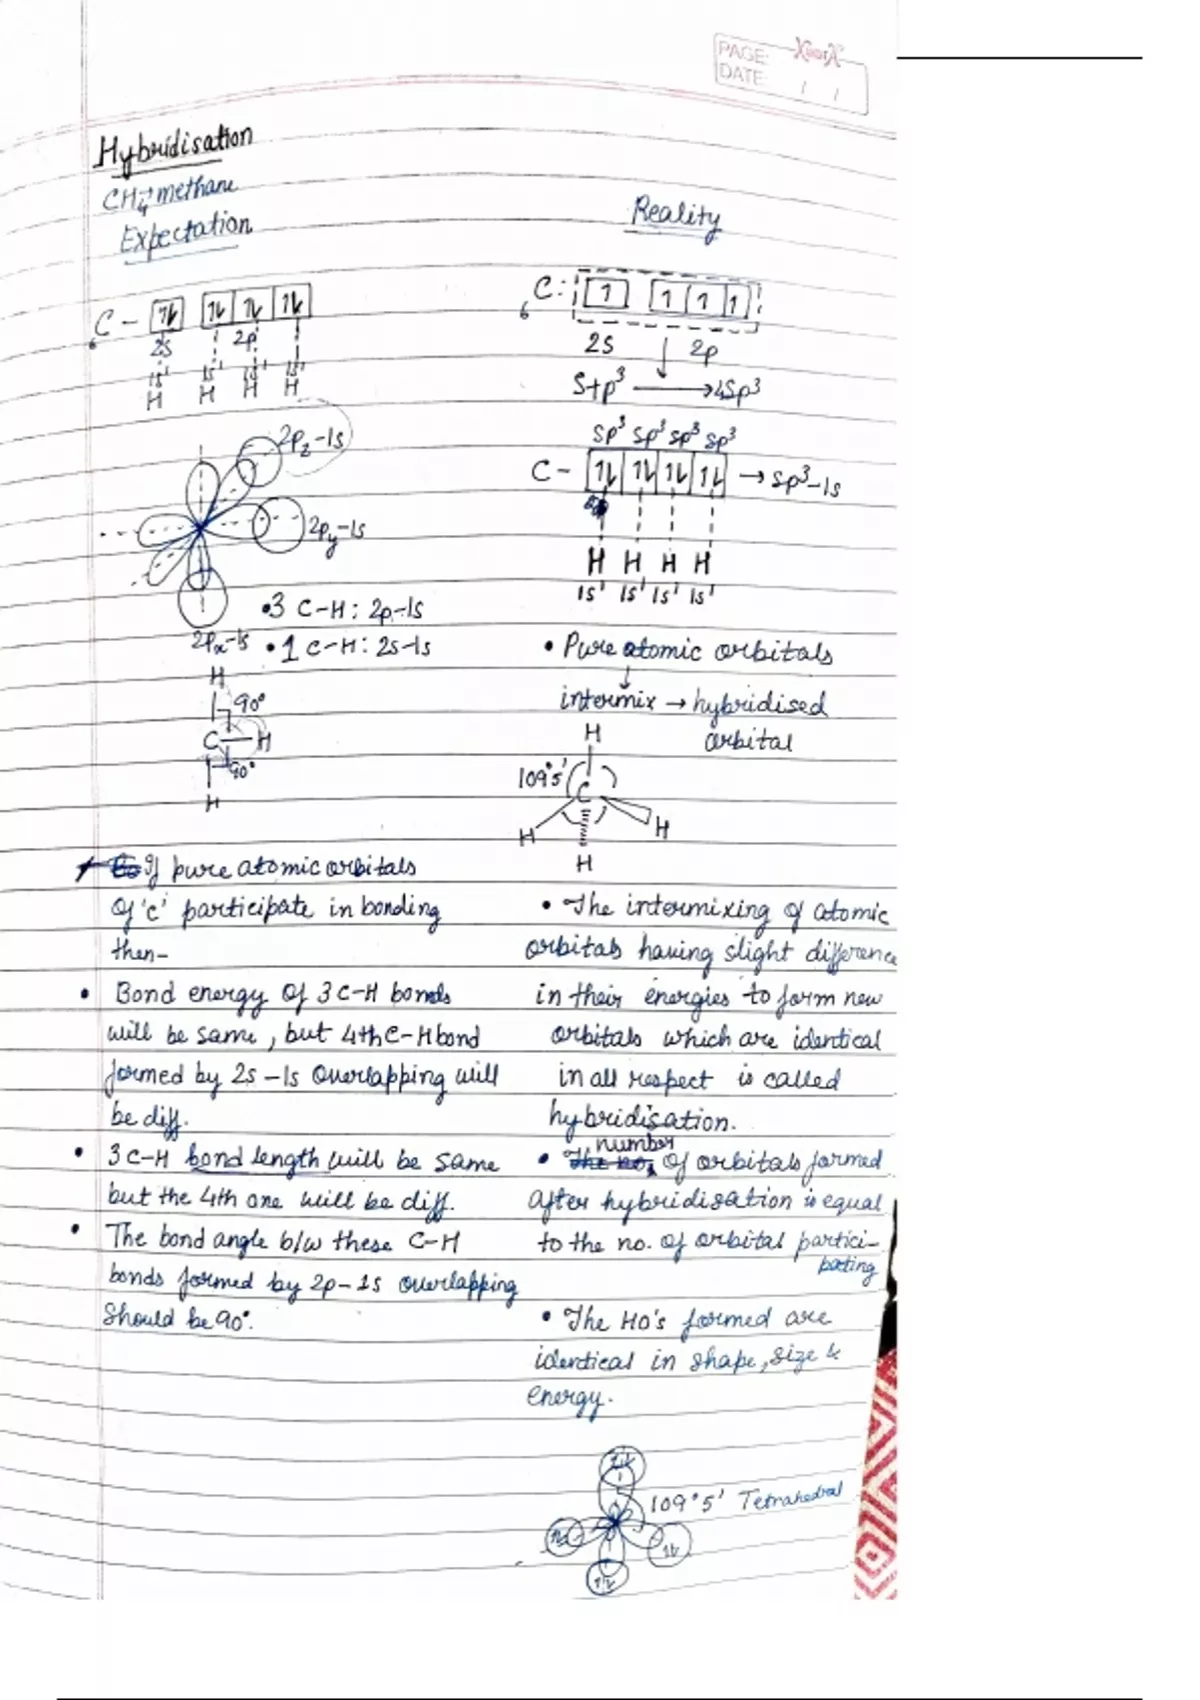 PAGE:
DATE: / /
Hybridisation
CH₄ → methane
Expectation
₆C – ↿⇂ ↿⇂ ↿⇂ ↿⇂
2s 2p
1s¹ 1s¹ 1s¹ 1s¹
H H H H
2Pz-1s
2Py-1s
•3 C-H: 2p-1s
2Px-1s •1 C-H: 2s-1s
H
90°
C H
90°
H
If pure atomic orbitals
of 'c' participate in bonding
then-
• Bond energy of 3 C-H bonds
will be same, but 4th C-H bond
formed by 2s-1s overlapping will
be diff.
• 3 C-H bond length will be same
but the 4th one will be diff.
• The bond angle b/w these C-H
bonds formed by 2p-1s overlapping
should be 90°.
Reality
₆C: 1 1 1 1
2S 2p
S+p³ → 4Sp³
sp³ sp³ sp³ sp³
C - ↿⇂ ↿⇂ ↿⇂ ↿⇂ → sp³-1s
H H H H
1s¹ 1s¹ 1s¹ 1s¹
• Pure atomic orbitals
↓
intermix → hybridised
orbital
H
109°5'
C
H H
H
• The intermixing of atomic
orbitals having slight difference
in their energies to form new
orbitals which are identical
in all respect is called
hybridisation.
• number of orbitals formed
after hybridisation is equal
to the no. of orbital partici-
pating
• The HO's formed are
identical in shape, size &
energy.
109°5' Tetrahedral